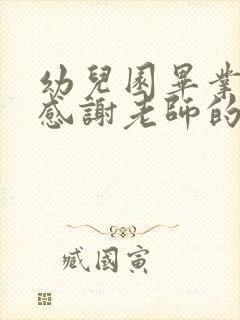 幼兒園畢業
感謝老師的
臧國寅